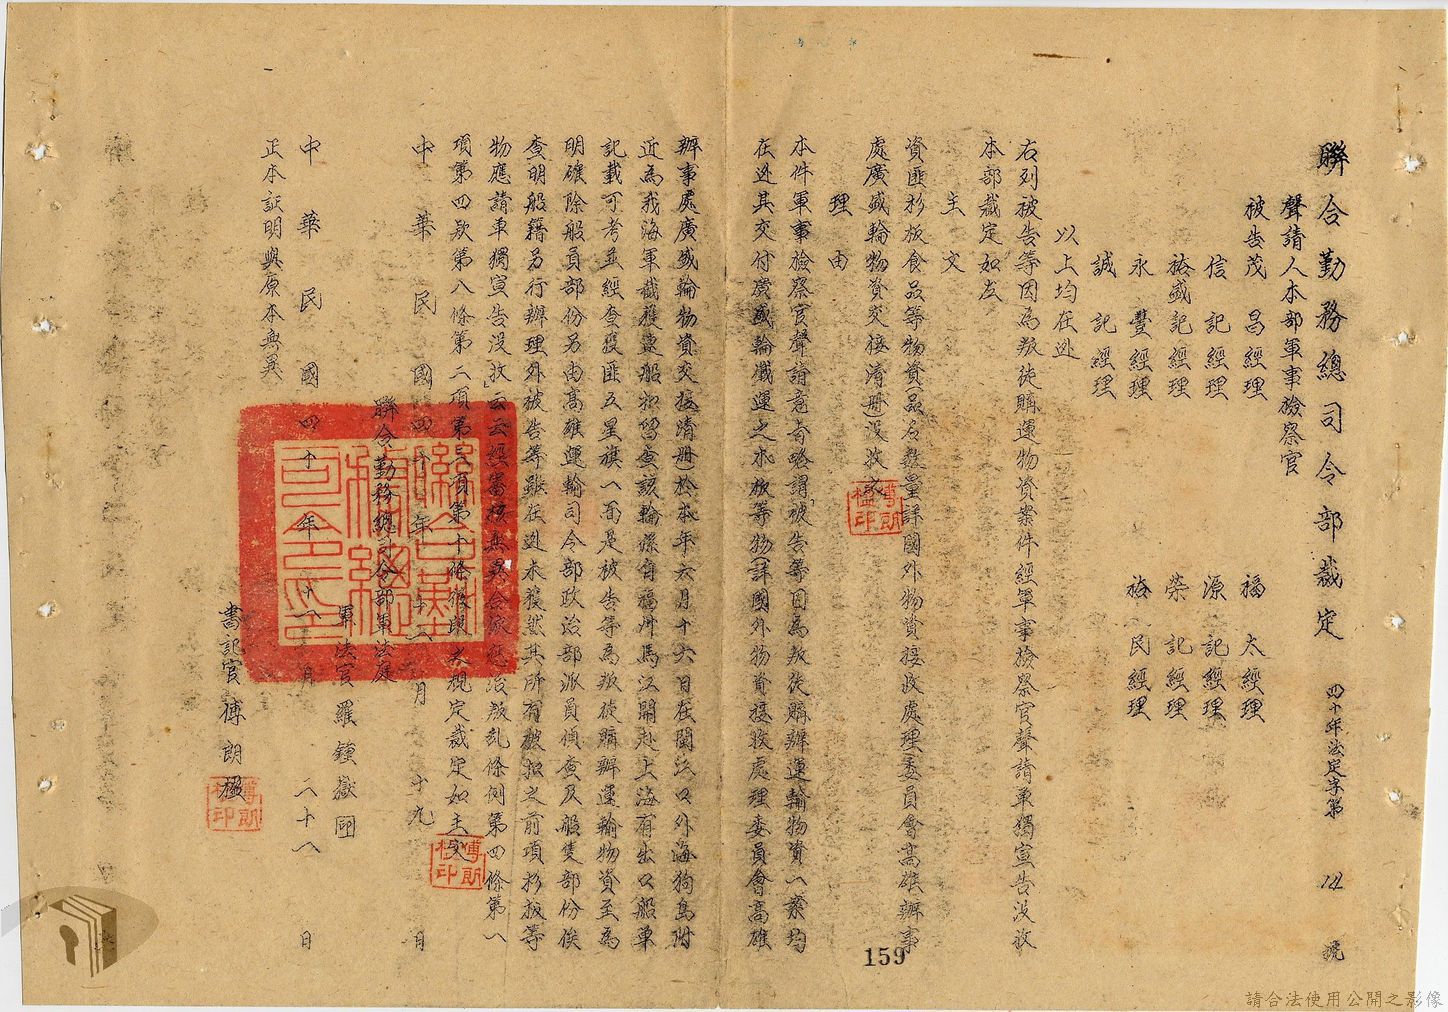 聯合勤務總司令部裁定 四十年法定字第 14 號
聲請人本部軍事檢察官
被告茂昌經理 福太經理
信記經理 源記經理
裕盛記經理 榮記經理
永豐經理 裕民經理
誠記經理
以上均在逃
右列被告等因為叛徒購運物資案件經軍事檢察官聲請單獨宣告沒收
本部裁定如左
主文
資匪杉板食品等物資(品名數量詳國外物資接收處理委員會高雄辦事
處廣盛輪物資交接清冊)沒收之
理由
本件軍事檢察官聲請意旨略謂「被告等因為叛徒購辦運輸物資一案均
在逃其交付廣盛輪載運之木板等物(詳國外物資接收處理委員會高雄
辦事處廣盛輪物資交接清冊)於本年六月十六日在閩江口外海狗島附
近為我海軍截獲連船扣留查該輪係自福州馬江開赴上海有出口船單
記載可考並經查獲匪五星旗一面是被告等為叛徒購辦運輸物資至為
明確除船員部份另由高雄運輸司令部政治部派員偵查及船隻部份俟
查明船籍另行辦理外被告等雖在逃未獲然其所有被扣之前項杉板等
物應請單獨宣告沒收」云云經審核無異合依懲治叛亂條例第四條第一
項第四款第八條第二項第三項第十條後段之規定裁定如主文
中華民國四十年十二月十九日
聯合勤務總司令部軍法庭
軍法官羅鍾嶽
中華民國四十年十二月二十八日
正本証明與原本無異
書記官傅朗
159
請合法使用公開之影像